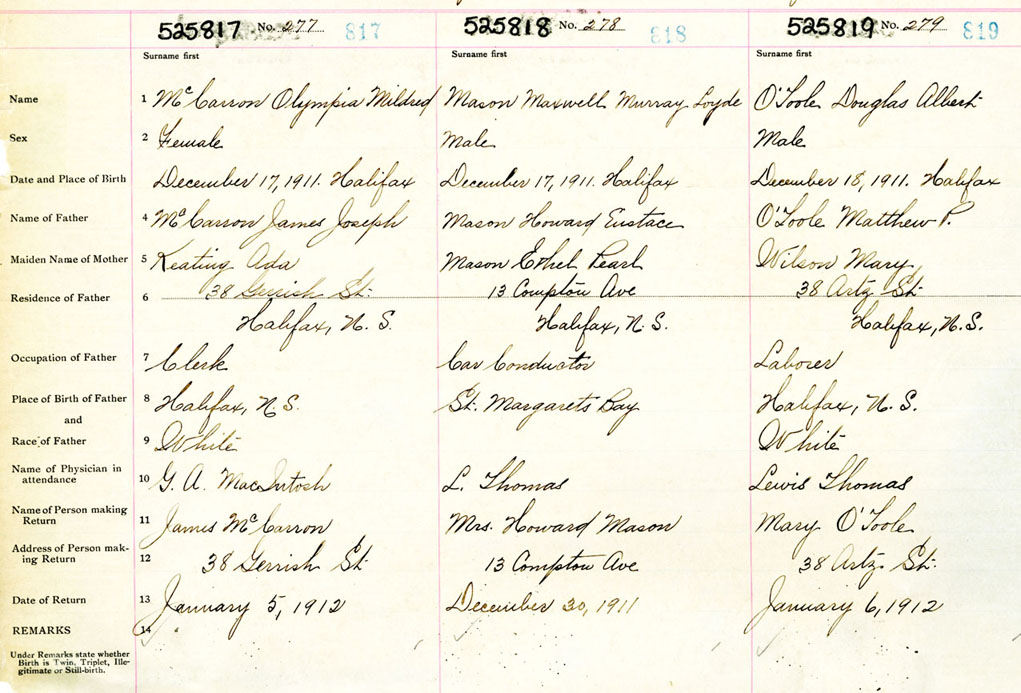 525817 No. 277 817 525818 No. 278 818 525819 No. 279 819
Surname first Surname first Surname first
Name 1 McCarron Olympia Mildred Mason Maxwell Murray Loyde O'Toole Douglas Albert
Sex 2 Female Male Male
Date and Place of Birth December 17, 1911. Halifax December 17, 1911. Halifax December 18, 1911. Halifax
Name of Father 4 McCarron James Joseph Mason Howard Eustace O'Toole Matthew P.
Maiden Name of Mother 5 Keating Ada Mason Ethel Pearl Wilson Mary
Residence of Father 6 38 Gerrish St. 13 Compton Ave 38 Artz St.
Halifax, N. S. Halifax, N. S. Halifax, N.S.
Occupation of Father 7 Clerk Car Conductor Laborer
Place of Birth of Father 8 Halifax, N. S. St. Margarets Bay Halifax, N. S.
and
Race of Father 9 White White
Name of Physician in
attendance 10 G. A. MacIntosh L. Thomas Lewis Thomas
Name of Person making
Return 11 James McCarron Mrs. Howard Mason Mary O'Toole
Address of Person mak-
ing Return 12 38 Gerrish St. 13 Compton Ave 38 Artz St.
Date of Return 13 January 5, 1912 December 30, 1911 January 6, 1912
REMARKS 14
Under Remarks state whether
Birth is Twin, Triplet, Ille-
gitimate or Still-birth.